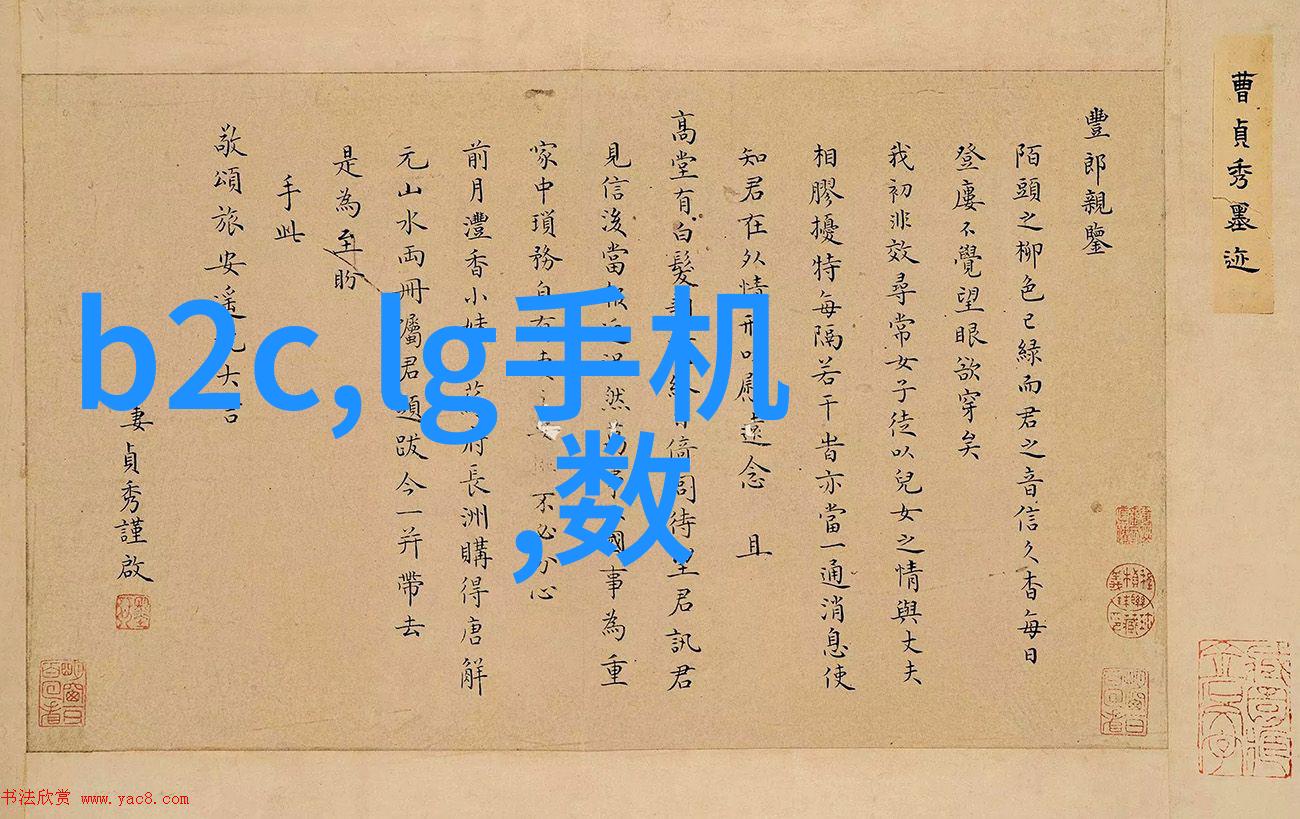 曹貞秀墨迹
豐郎親鑒
陌頭之柳色已綠而君之音信久杳每日
登廔不覺望眼欲穿矣
我初非效尋常女子徒以兒女之情與丈夫
相膠擾特每隔若干昔亦當一通消息使
知君在外情形以慰遠念 且
高堂有白髮 倚閭待 望君訊君
見信後當 然 國事為重
家中瑣務自有 不必分心
前月灃香小 府長洲購得唐解
元山水兩冊囑君題跋今一并帶去
是為至盼
手此
敬頌旅安遥 大吉
妻貞秀謹啟
b2c,lg手机
,数
书法欣赏 www.yac8.com